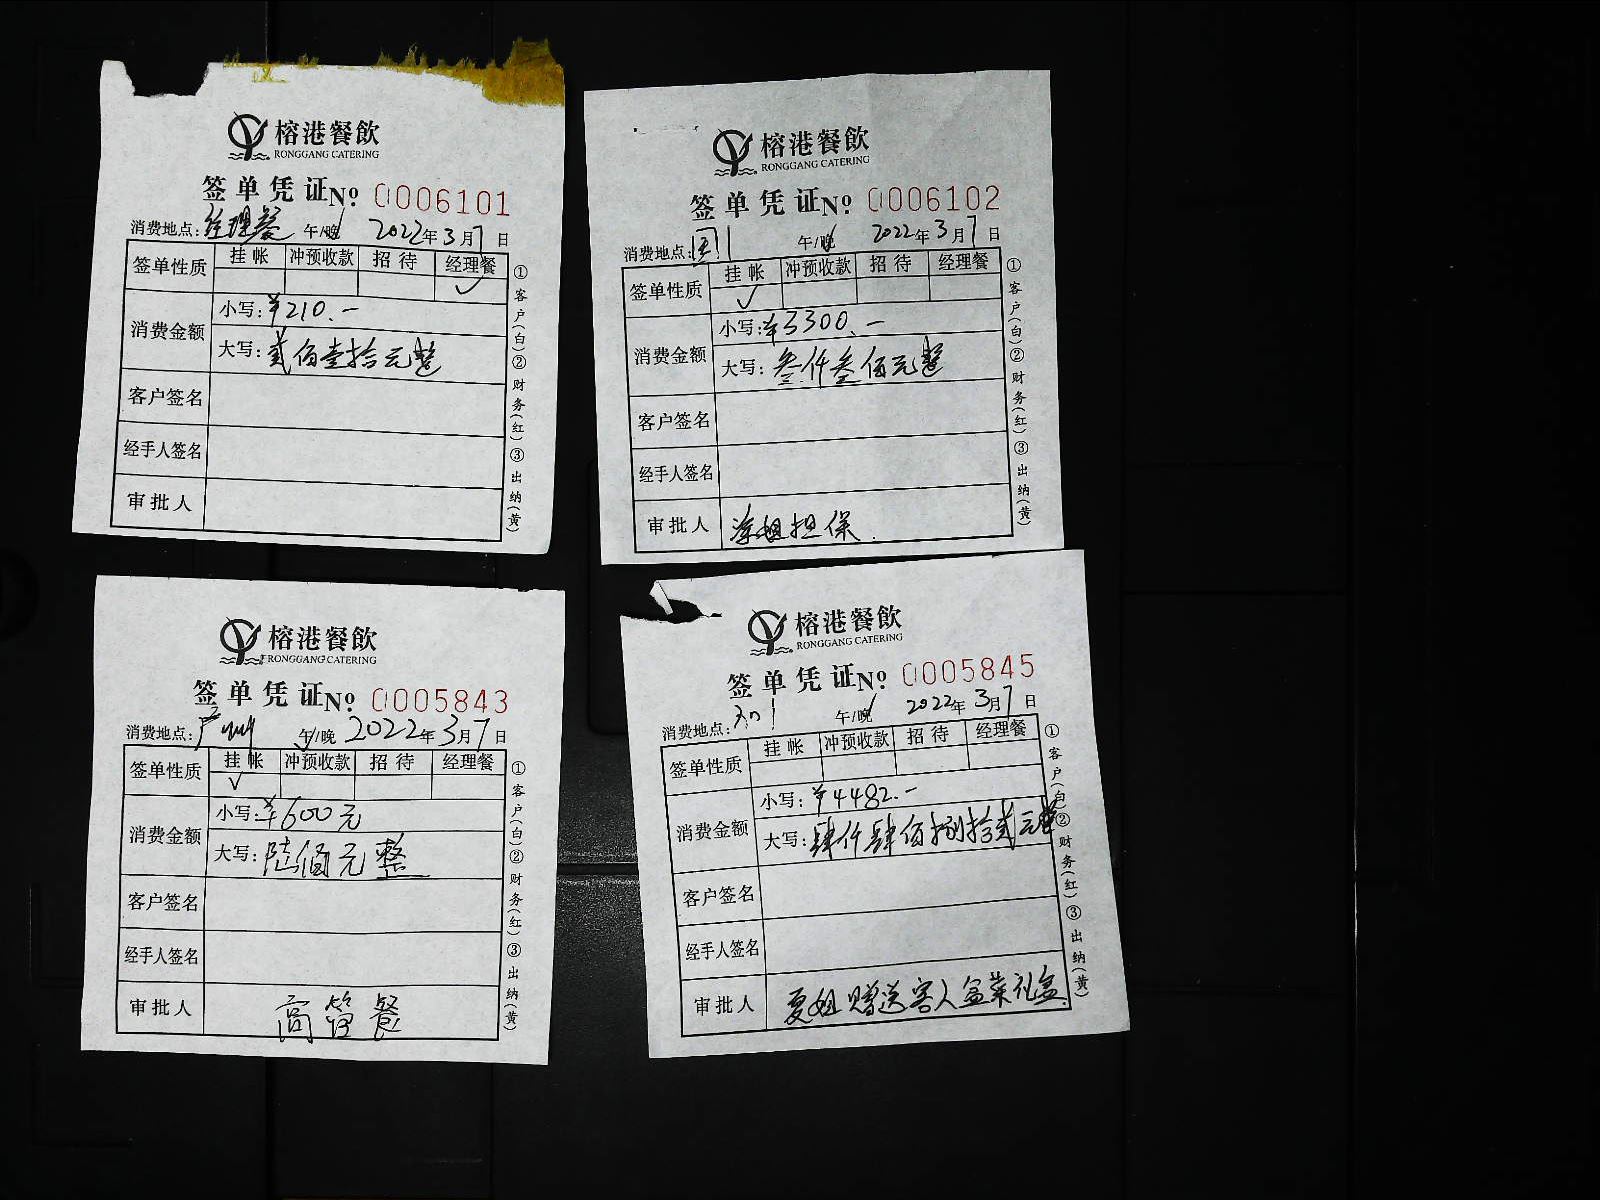 榕港餐飲
RONGGANG CATERING
签单凭证 Nº 0006101
消费地点: 经理餐 午/晚 2022年3月7日
签单性质 挂帐 冲预收款 招待 经理餐
✓
消费金额 小写: ¥210.一
大写: 贰佰壹拾元整
客户签名
经手人签名
审批人
①客户(白)②财务(红)③出纳(黄)
榕港餐飲
RONGGANG CATERING
签单凭证 Nº 0006102
消费地点: 午/晚 2022年3月7日
签单性质 挂帐 冲预收款 招待 经理餐
✓
消费金额 小写: ¥3300.一
大写: 叁仟叁佰元整
客户签名
经手人签名
审批人 姐担保
①客户(白)②财务(红)③出纳(黄)
榕港餐飲
RONGGANG CATERING
签单凭证 Nº 0005843
消费地点: 广州 午/晚 2022年3月7日
签单性质 挂帐 冲预收款 招待 经理餐
✓
消费金额 小写: ¥600元
大写: 陆佰元整
客户签名
经手人签名
审批人 高管餐
①客户(白)②财务(红)③出纳(黄)
榕港餐飲
RONGGANG CATERING
签单凭证 Nº 0005845
消费地点: 午/晚 2022年3月7日
签单性质 挂帐 冲预收款 招待 经理餐
消费金额 小写: ¥4482.一
大写: 肆仟肆佰捌拾贰元整
客户签名
经手人签名
审批人 夏姐赠送客人盆菜礼盒
①客户(白)②财务(红)③出纳(黄)